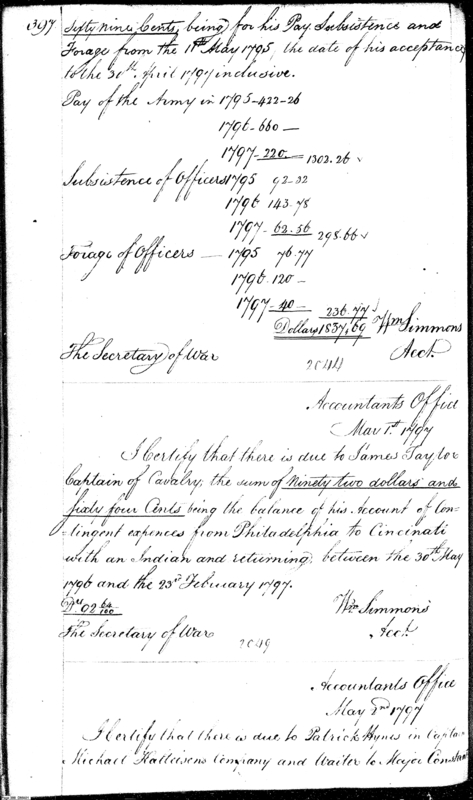 397
fifty nine Cents, being for his Pay Subsistence and
Forage from the 11th May 1795, the date of his acceptance
to the 30th April 1797 inclusive.
Pay of the Army in 1795-422-26
1796-660 —
1797-220 — 1302.26
Subsistence of Officers 1795 92-32
1796 143.78
1797- 62.56 298.66
Forage of Officers — 1795 76.77
1796 120 —
1797-40 — 236.77
Dollars 1837.69
Wm Simmons
Acct.
The Secretary of War
2044
Accountants Office
May 1st 1797
I Certify that there is due to James Taylor
Captain of Cavalry, the sum of Ninety two dollars and
sixty four Cents being the balance of his Account of Con-
-tingent expences from Philadelphia to Cincinati
with an Indian and returning, between the 30th May
1796 and the 23rd February 1797.
Drs 92 64/100
Wm Simmons
Acct.
The Secretary of War
2049
Accountants Office
May 2nd 1797
I Certify that there is due to Patrick Hynes in Capta
Michael Company and Waiter to Major